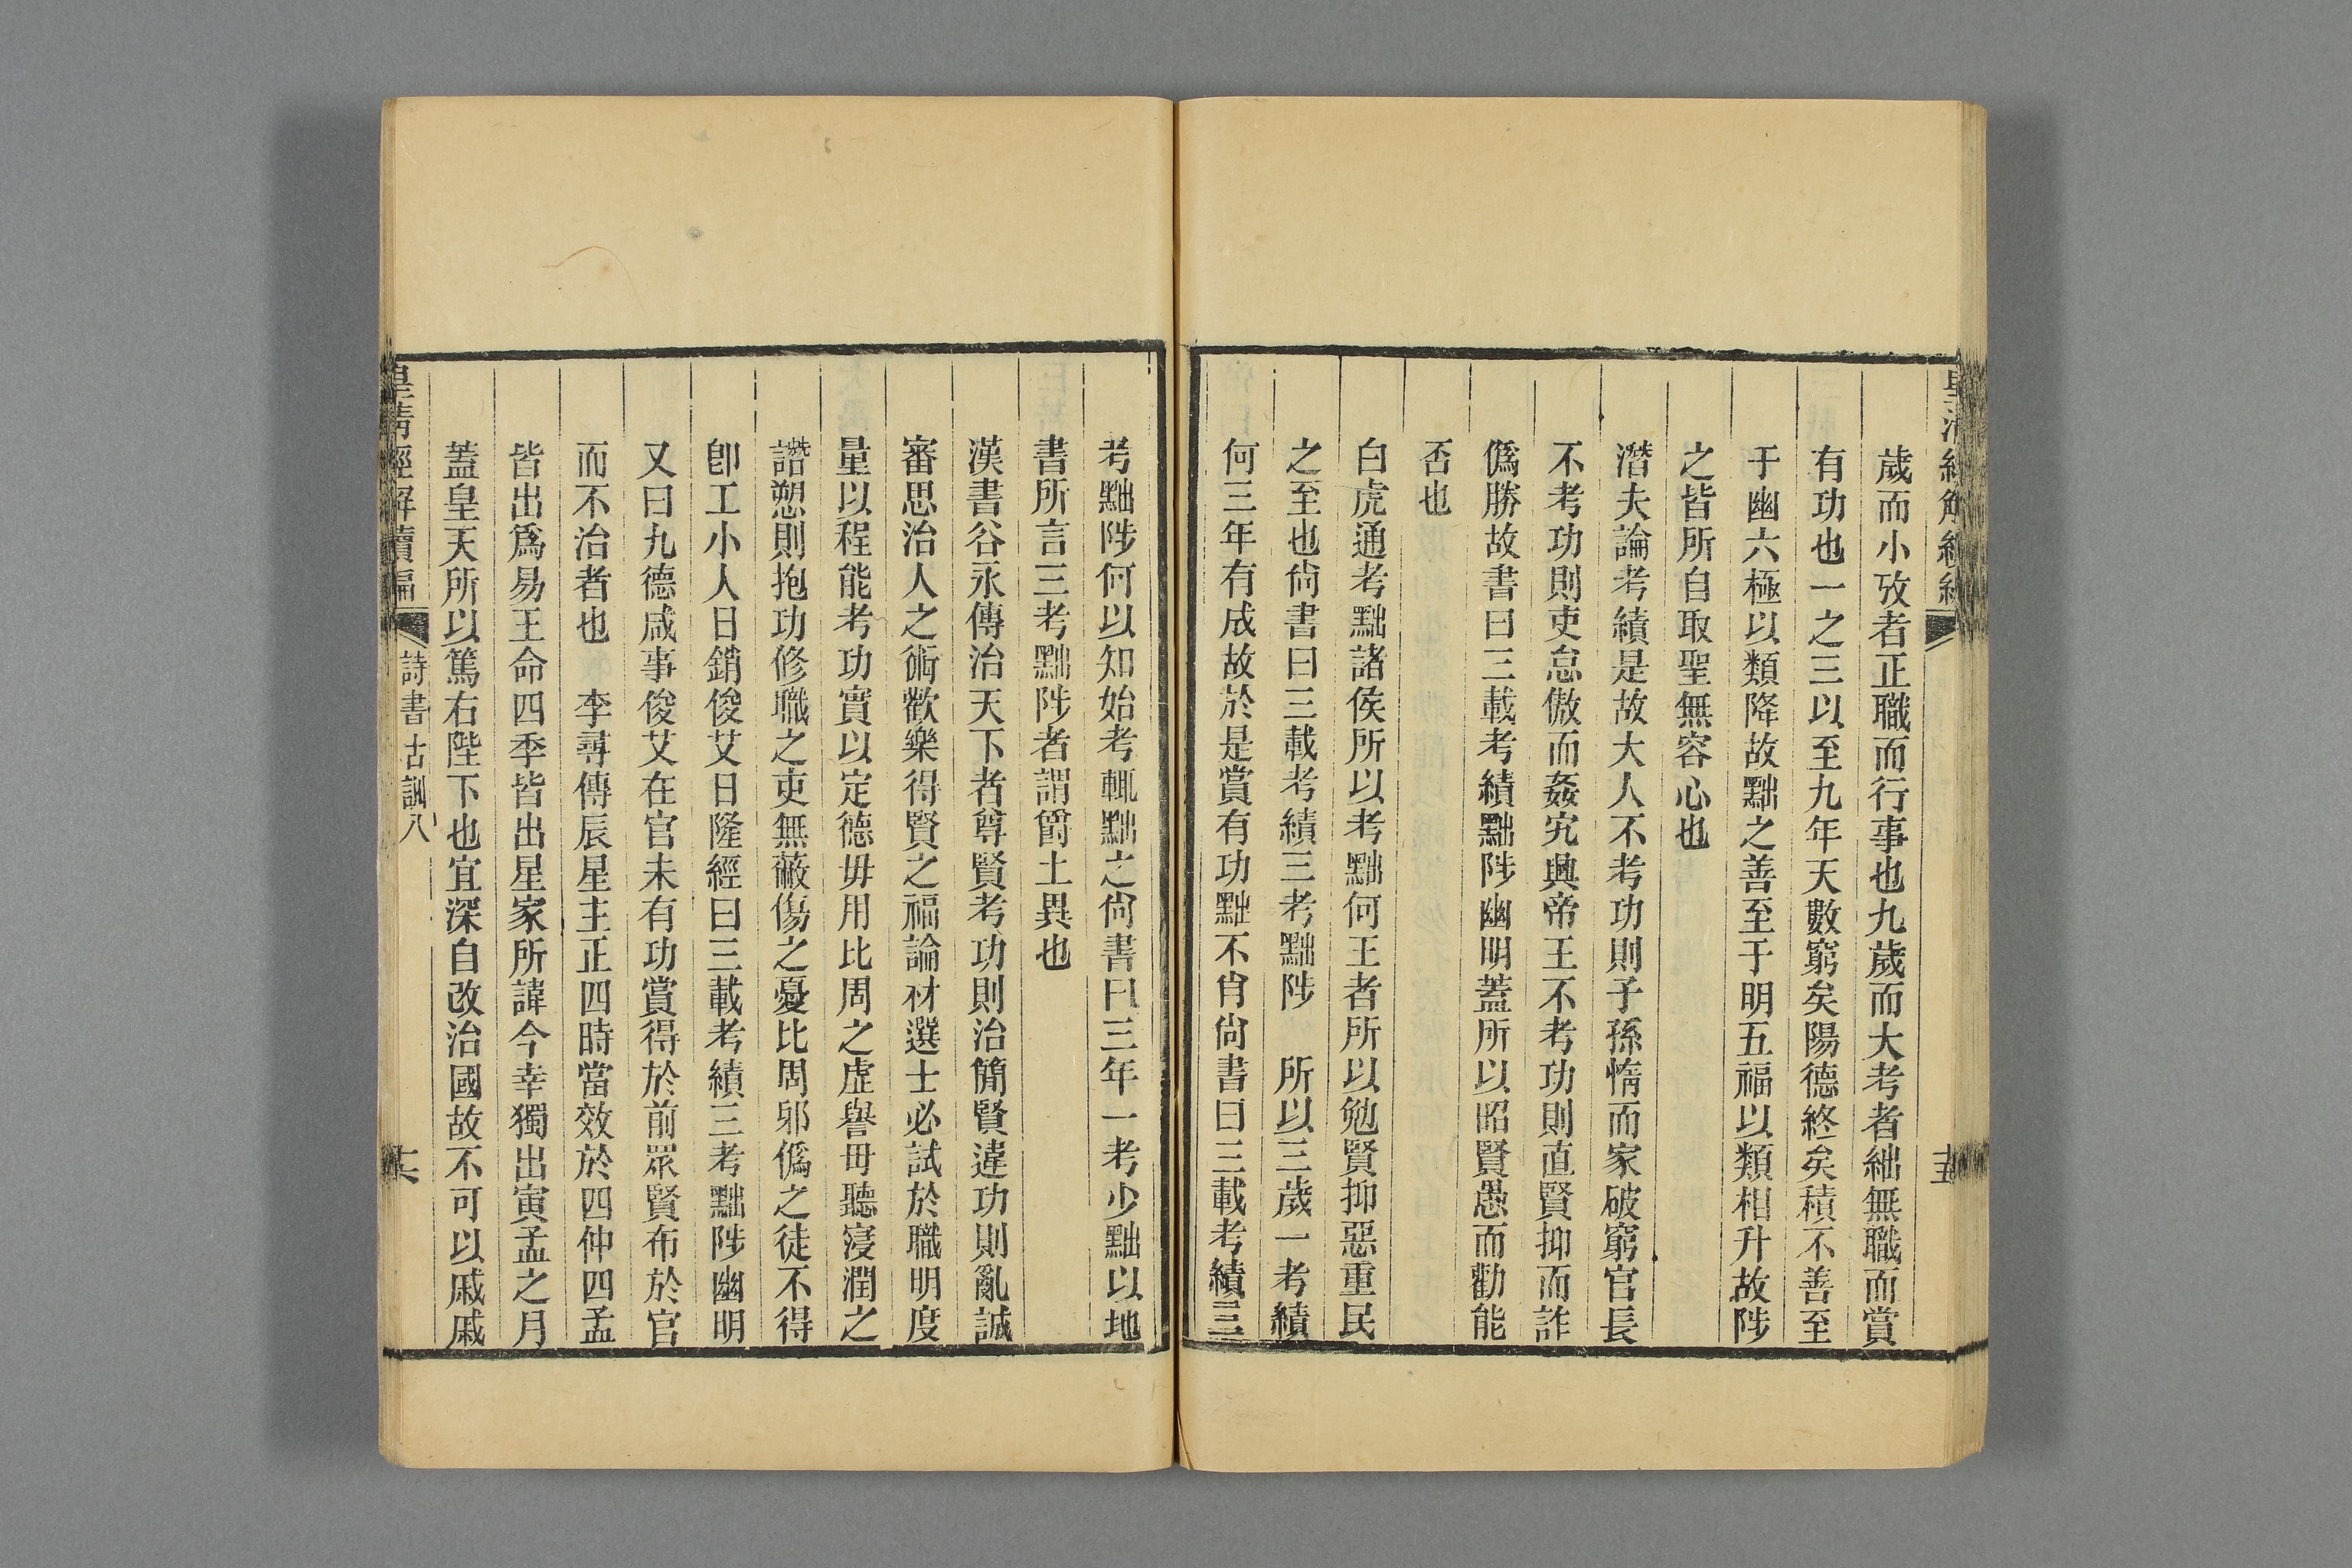 歲而小攷者正職而行事也九歲而大考者絀無職而賞
有功也一之三以至九年天數窮矣陽德終矣積不善至
于幽六極以類降故黜之善至于明五福以類相升故陟
之皆所自取聖無容心也
潛夫論考績是故大人不考功則子孫惰而家破窮官長
不考功則吏怠傲而姦宄興帝王不考功則直賢抑而詐
僞勝故書曰三載考績黜陟幽明蓋所以昭賢愚而勸能
否也
白虎通考黜諸侯所以考黜何王者所以勉賢抑惡重民
之至也尙書曰三載考績三考黜陟　所以三歲一考績
何三年有成故於是賞有功黜不肖尙書曰三載考績三
考黜陟何以知始考輒黜之尙書曰三年一考少黜以地
書所言三考黜陟者謂爵土異也
漢書谷永傳治天下者尊賢考功則治簡賢違功則亂誠
審思治人之術歡樂得賢之福論材選士必試於職明度
量以程能考功實以定德毋用比周之虛譽毋聽寖潤之
譖愬則抱功修職之吏無蔽傷之憂比周邪僞之徒不得
卽工小人日銷俊艾日隆經曰三載考績三考黜陟幽明
又曰九德咸事俊艾在官未有功賞得於前眾賢布於官
而不治者也　李尋傳辰星主正四時當效於四仲四孟
皆出爲易王命四季皆出星家所諱今幸獨出寅孟之月
蓋皇天所以篤右陛下也宜深自改治國故不可以戚戚
皇淸經解續編
詩書古訓八